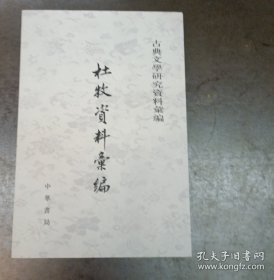 古典文學研究資料彙編
杜牧資料彙編
中華書局
孔夫子旧书网
book.kongfz.com